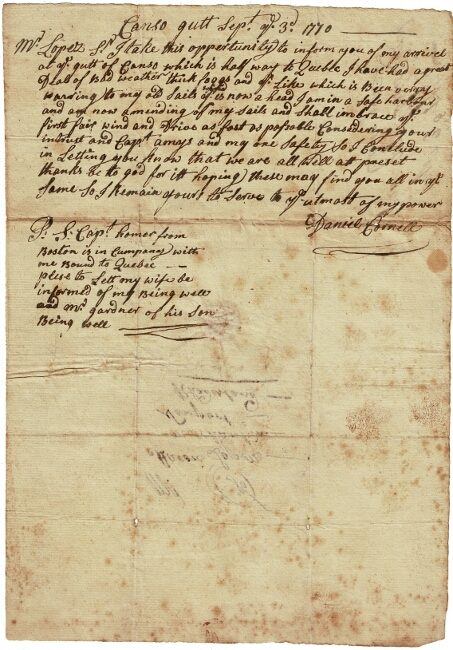 Canso gutt Sept. ye. 3d. 1770
Mr. Lopez Sr. I take this opportunity to inform you of my arrivel
at ye. gutt of Canso which is half way to Quebk I have had a great
of Bad weather thick foggs and ye. Like which is Been very
waring to my old Sails is now a head I am in a Safe harbour
and am now amending of my Sails and Shall imbrace ye.
first fair wind and drive as fast as posoble Considering your
intrust and Capt. amays and my one Safty So I Conclude
in Letting you know that we are all well at preset
thanks be to god for itt hoping these may find you all in ye.
Same So I Remain yours to Serve to ye. utmost of my power
Daniel Cornell
P. S. Capt. homer from
Boston is in Company with
me Bound to Quebec
plese to Lett my wife be
informed of my Being well
and Mr. gardner of his Son
Being well